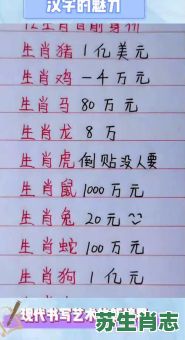 汉字的魅力
生肖猪 1亿美元
生肖鸡 -4万元
生肖马 80万元
生肖龙 8万
生肖虎 倒贴没人要
生肖鼠 1000万元
生肖兔 20元
生肖蛇 100万元
生肖狗 1亿元
现代书写艺术
苏生肖志